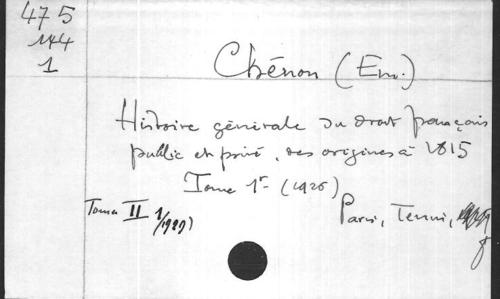 475
144
1
Chénon (Em.)
Histoire générale du droit français
public et privé, des origines à 1815
Tome 1er (1926)
Tome II 1/1929)
Paris, Tenin,
8